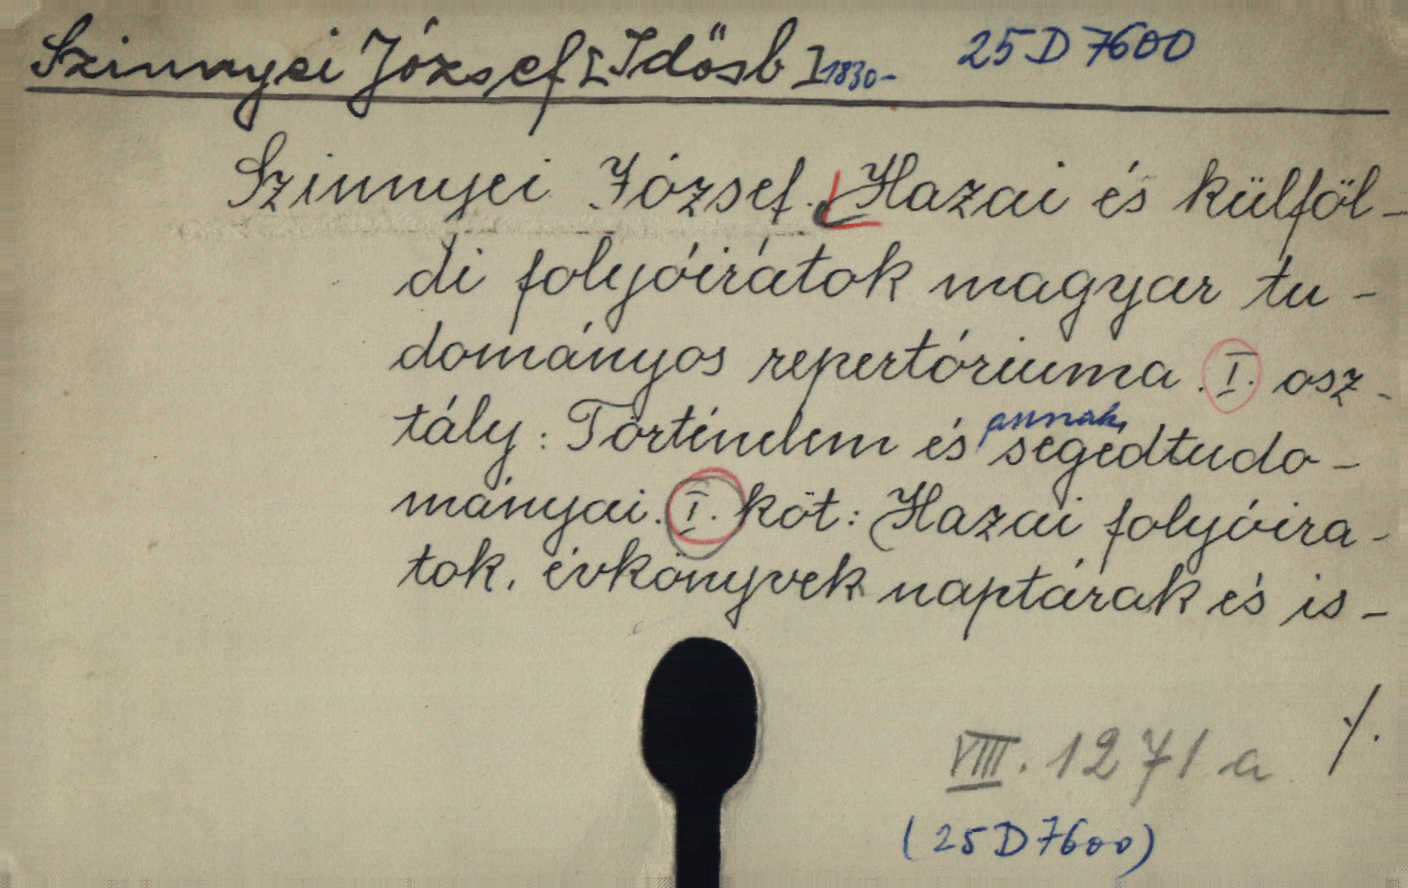 Szinnyei József [Idősb] 1830- 25 D 7600
Szinnyei József. Hazai és külföl-
di folyóirátok magyar tu-
dományos repertóriuma. I. osz-
tály: Történelem és annak segédtudo-
mányai. I. köt: Hazai folyóira-
tok, évkönyvek naptárak és is-
./.
VIII. 1271 a
(25 D 7600)